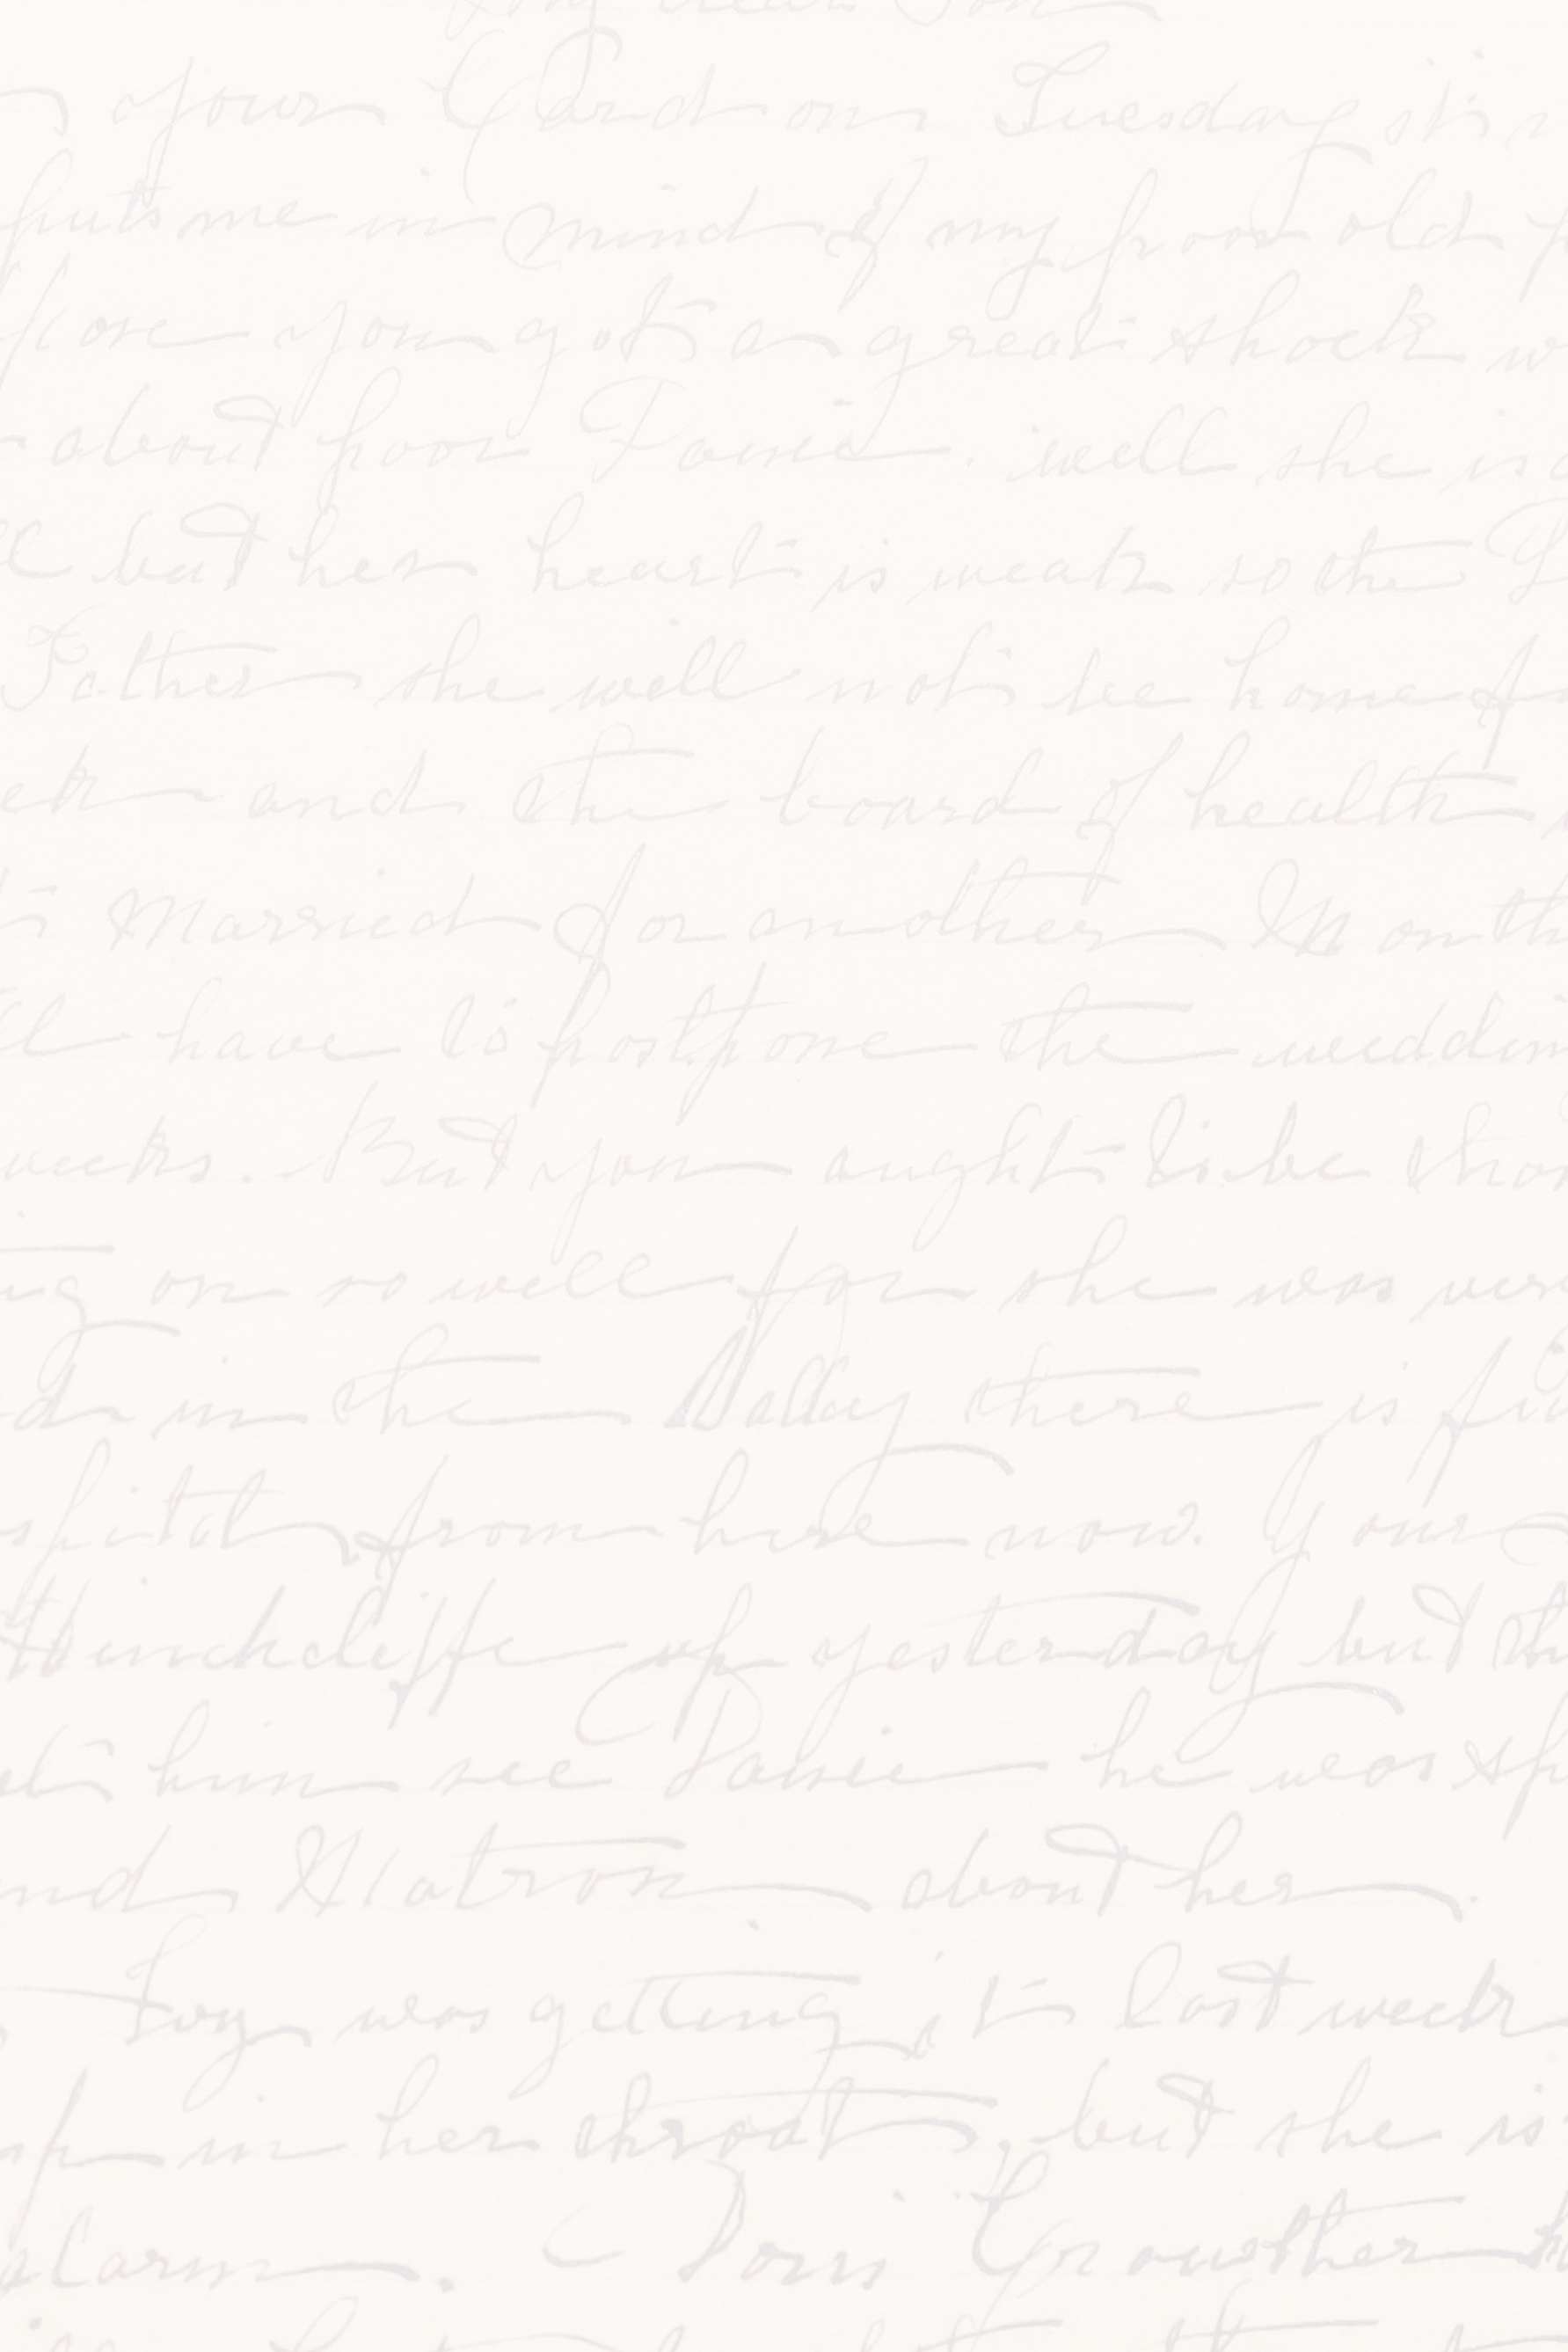 My dear Son
your Card on Tuesday it's
puts me in mind of my poor old
fore you got a great shock
about poor Janie. well she is
but her heart is weak so the
Father she will not be home f
ek and the board of health
Married for another Month
have to postpone the weddin
weeks. But you aught to be than
ing on so well for she was ver
d in the Valley there is fi
spital from here now. Your
Hinchcliffe up yesterday but th
et him see Janie he was sp
nd Matron about her.
Ivy was getting it last week
up in her throat, but she is
alarm. Doris Crowther